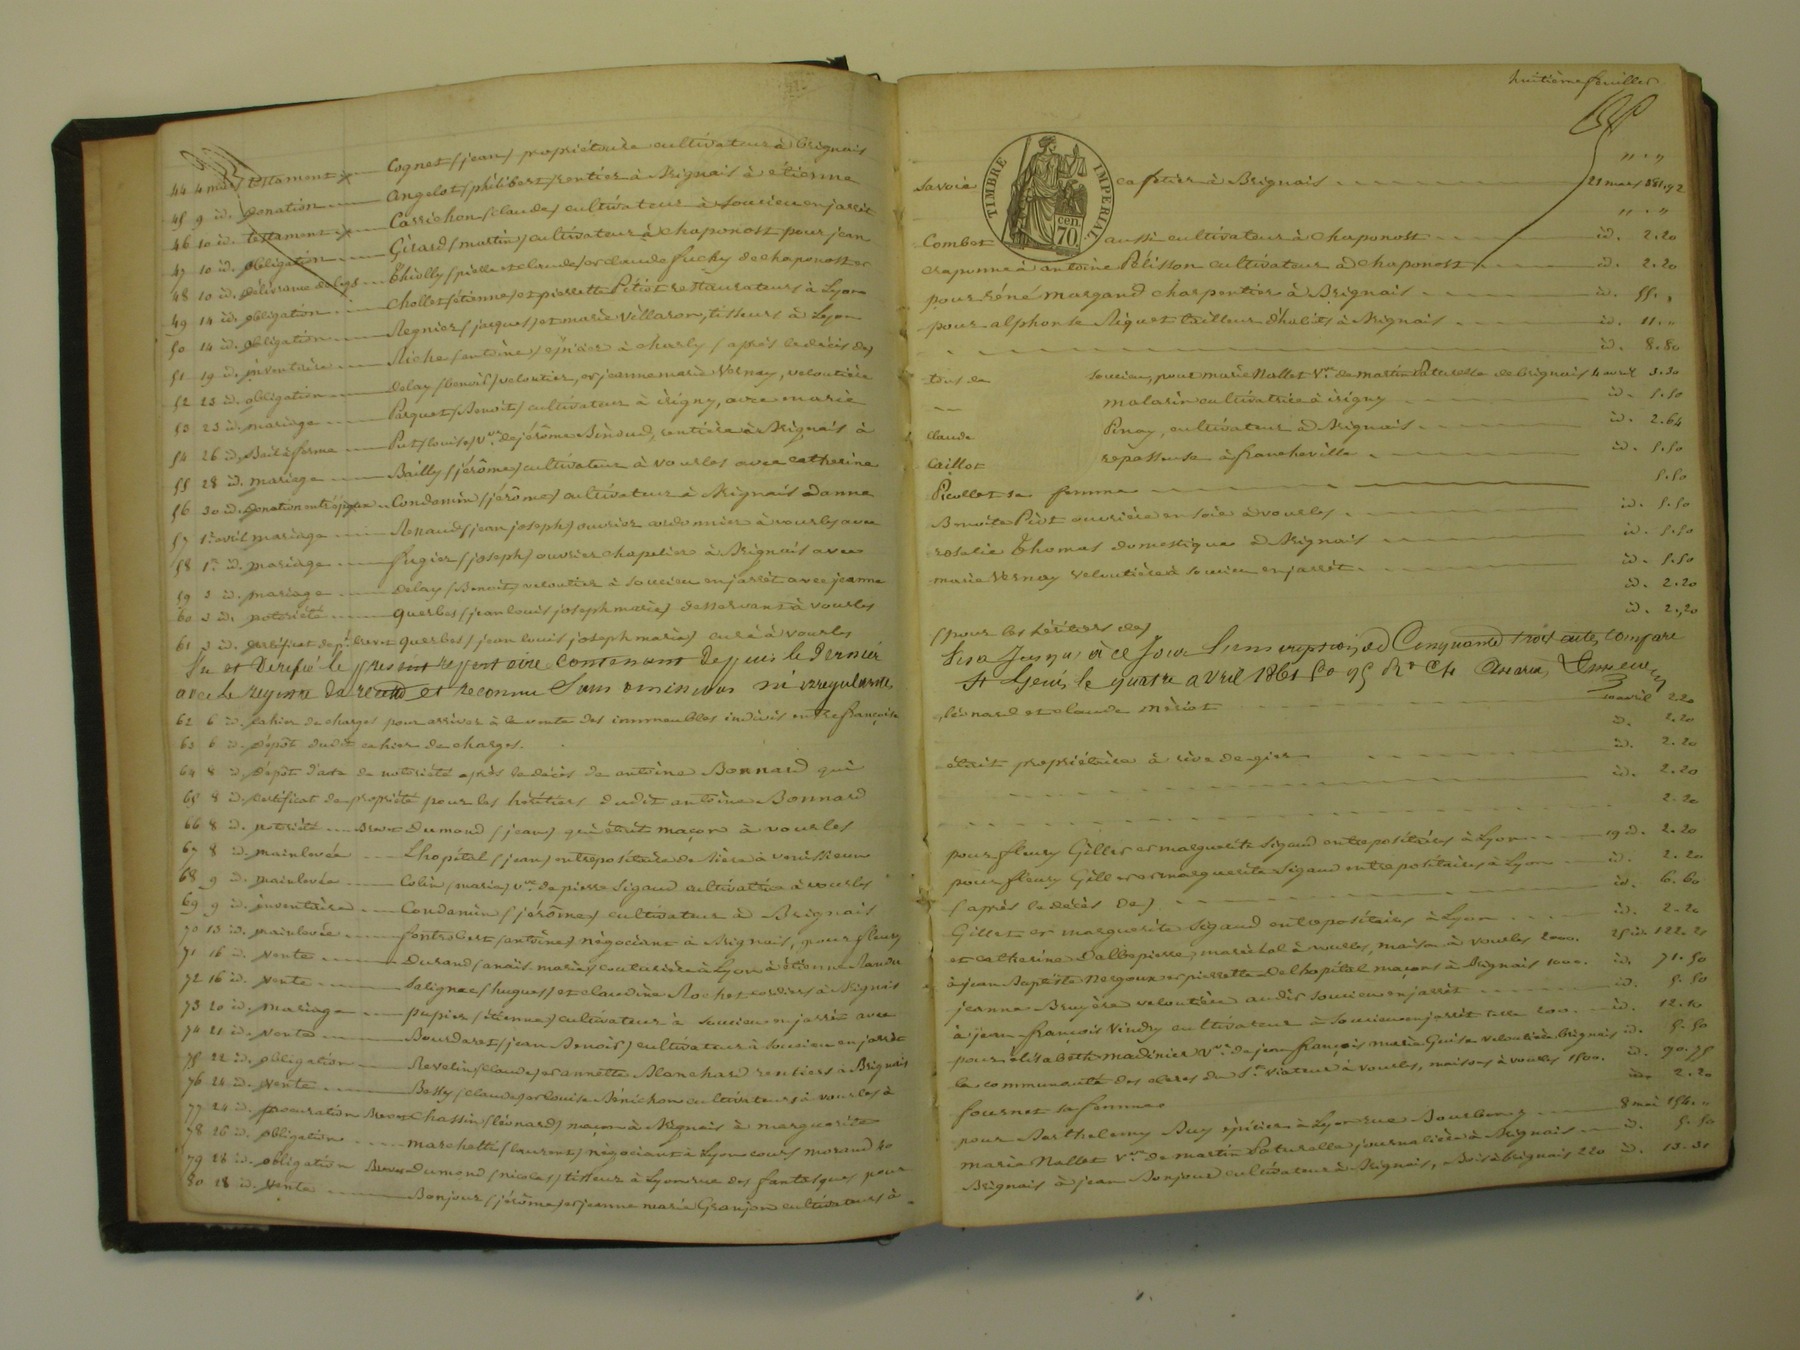 44 4 mars testament Cognet (jean) propriétaire cultivateur à Brignais
45 9 id. donation Angelot (philibert) rentier à Brignais à étienne
46 10 id. testament Carrichon (claude) cultivateur à Soucieu en jarrêt
47 10 id. obligation Girard (martin) cultivateur à chaponost pour jean
48 10 id. délivrance de legs Thiolly (pierre et claude) et claude fuchy de chaponost et
49 14 id. obligation chollet (étienne) et pierrette Pitiot restaurateurs à Lyon
50 14 id. obligation Regnier (jacques) et marie Villaron, tisseurs à Lyon
51 19 id. inventaire Riche (antoine) épicier à charly (après le décès de)
52 23 id. obligation delay (benoit) veloutier, et jeanne marie Vernay, veloutière
53 23 id. mariage Parquet (Benoit) cultivateur à irigny, avec marie
54 26 id. Bail à ferme Put (louise) Vve de jérôme Binoud, rentière à Brignais à
55 28 id. mariage Bailly (jérôme) cultivateur à vourles avec catherine
56 30 id. donation entre époux Condamin (jérôme) cultivateur à Brignais à anne
57 1er avril mariage Renaud (jean joseph) ouvrier cordonnier à vourles avec
58 1er id. mariage fugier (joseph) ouvrier chapelier à Brignais avec
59 3 id. mariage delay (Benoit) veloutier à Soucieu en jarrêt avec jeanne
60 3 id. notoriété Querbes (jean louis joseph marie) desservant à vourles
61 3 id. certificat de p. brevet Querbes (jean louis joseph marie) curé à vourles
Vu et Vérifié le présent repertoire contenant depuis le dernier
avec le registre de recette et reconnu sans omission ni irregularité,
62 6 id. Cahier de charges pour arriver à la vente des immeubles indivis entre françoise
63 6 id. Dépôt dudit cahier de charges.
64 8 id. Dépôt d'acte de notoriété après le décès de antoine Bonnard qui
65 8 id. certificat de propriété pour les héritiers dudit antoine Bonnard
66 8 id. notoriété Brevet Dumond (jean) qui était maçon à vourles
67 8 id. mainlevée Lhopital (jean) entrepositaire de bière à venissieux
68 9 id. mainlevée Colin (marie) Vve de pierre Sigaud cultivatrice à vourles
69 9 id. inventaire Condamin (jérôme) cultivateur à Brignais
70 13 id. mainlevée fontrobert (antoine) négociant à Brignais, pour fleury
71 16 id. vente Durand (anaïs marie) couturière à Lyon à étienne
72 16 id. vente Salignac (hugues) et claudine Rochet cordiers à Brignais
73 20 id. mariage pupier (étienne) cultivateur à Soucieu en jarrêt avec
74 21 id. vente Bourdaret (jean Benoit) cultivateur à Soucieu en jarrêt
75 22 id. obligation Revelin (claude) et annette Blanchard rentiers à Brignais
76 24 id. vente Bessy (claude) et louise Bénichon cultivateurs à vourles à
77 24 id. procuration Brevet Chassin (léonard) maçon à Brignais à marguerite
78 26 id. obligation marchetti (laurent) négociant à Lyon cours morand 40
79 28 id. obligation Brevet Dumond (nicolas) tisseur à Lyon rue des fantasques pour
80 28 id. vente Bonjour (jérôme) et jeanne marie Granjon cultivateurs à
huitième feuillet
TIMBRE IMPERIAL
70 cen
" . "
Savoie cafetier à Brignais 21 mars 181.92
" . "
Combet aussi cultivateur à chaponost id. 2.20
craponne à antoine Pélisson cultivateur à chaponost id. 2.20
pour réné margand charpentier à Brignais id. 55.,
pour alphonse Riquet tailleur d'habits à Brignais id. 11.,
id. 8.80
Soucieu, pour marie Nallet Vve de martin Paturelle de Brignais 4 avril 3.30
malarin cultivatrice à irigny id. 5.50
claude Pinay, cultivateur à Brignais id. 2.64
Caillot repasseuse à francheville id. 5.50
Picollet sa femme 5.50
Benoite Piot ouvrière en soie à vourles id. 5.50
rosalie Thomas domestique à Brignais id. 5.50
marie Vernay veloutière à Soucieu en jarrêt id. 5.50
id. 2.20
id. 2.20
(pour les héritiers de)
Visa Jusqu'à ce jour l'inscription de Cinquante trois actes, comparé
St Genis, le quatre avril 1861 fo 95 Ro
léonard et claude mériot avril 2.20
id. 2.20
était propriétaire à rive de gier id. 2.20
id. 2.20
2.20
pour fleury Gillet et marguerite Sigaud entrepositaires à Lyon 19 id. 2.20
pour fleury Gillet et marguerite Sigaud entrepositaires à Lyon id. 2.20
(après le décès de) id. 6.60
Gillet et marguerite Sigaud entrepositaires à Lyon id. 2.20
et catherine Dalbepierre, maréchal à vourles, maison à vourles 2000. 25 id. 122.21
à jean Baptiste Nergoux et pierrette Delhopital maçons à Brignais 1000. id. 71.50
jeanne Bruyère veloutière audit Soucieu en jarrêt id. 5.50
à jean françois Vindry cultivateur à Soucieu en jarrêt terre 200. id. 12.10
pour élisabeth madinier Vve de jean françois marie Guise veloutière Brignais id. 5.50
la communauté des clercs de St. viateur à vourles, maisons à vourles 1500. id. 90.75
fournet sa femme id. 2.20
pour Barthelemy Buy épicier à Lyon rue Bourbon 8 mai 154.,
marie Nallet Vve de martin Paturelle journalière à Brignais id. 5.50
Brignais à jean Bonjour cultivateur à Brignais, Bois à Brignais 220 id. 13.31